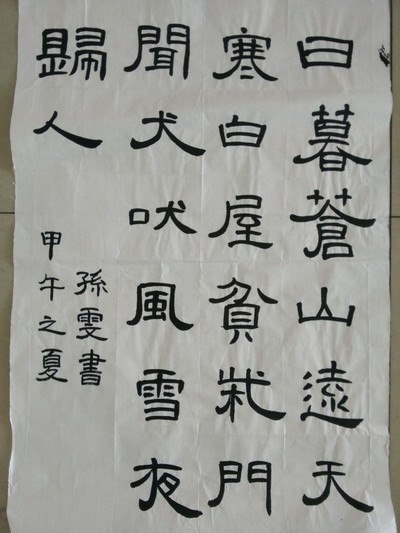 日暮蒼山遠天
寒白屋貧柴門
聞犬吠風雪夜
歸人
孫雯書
甲午之夏